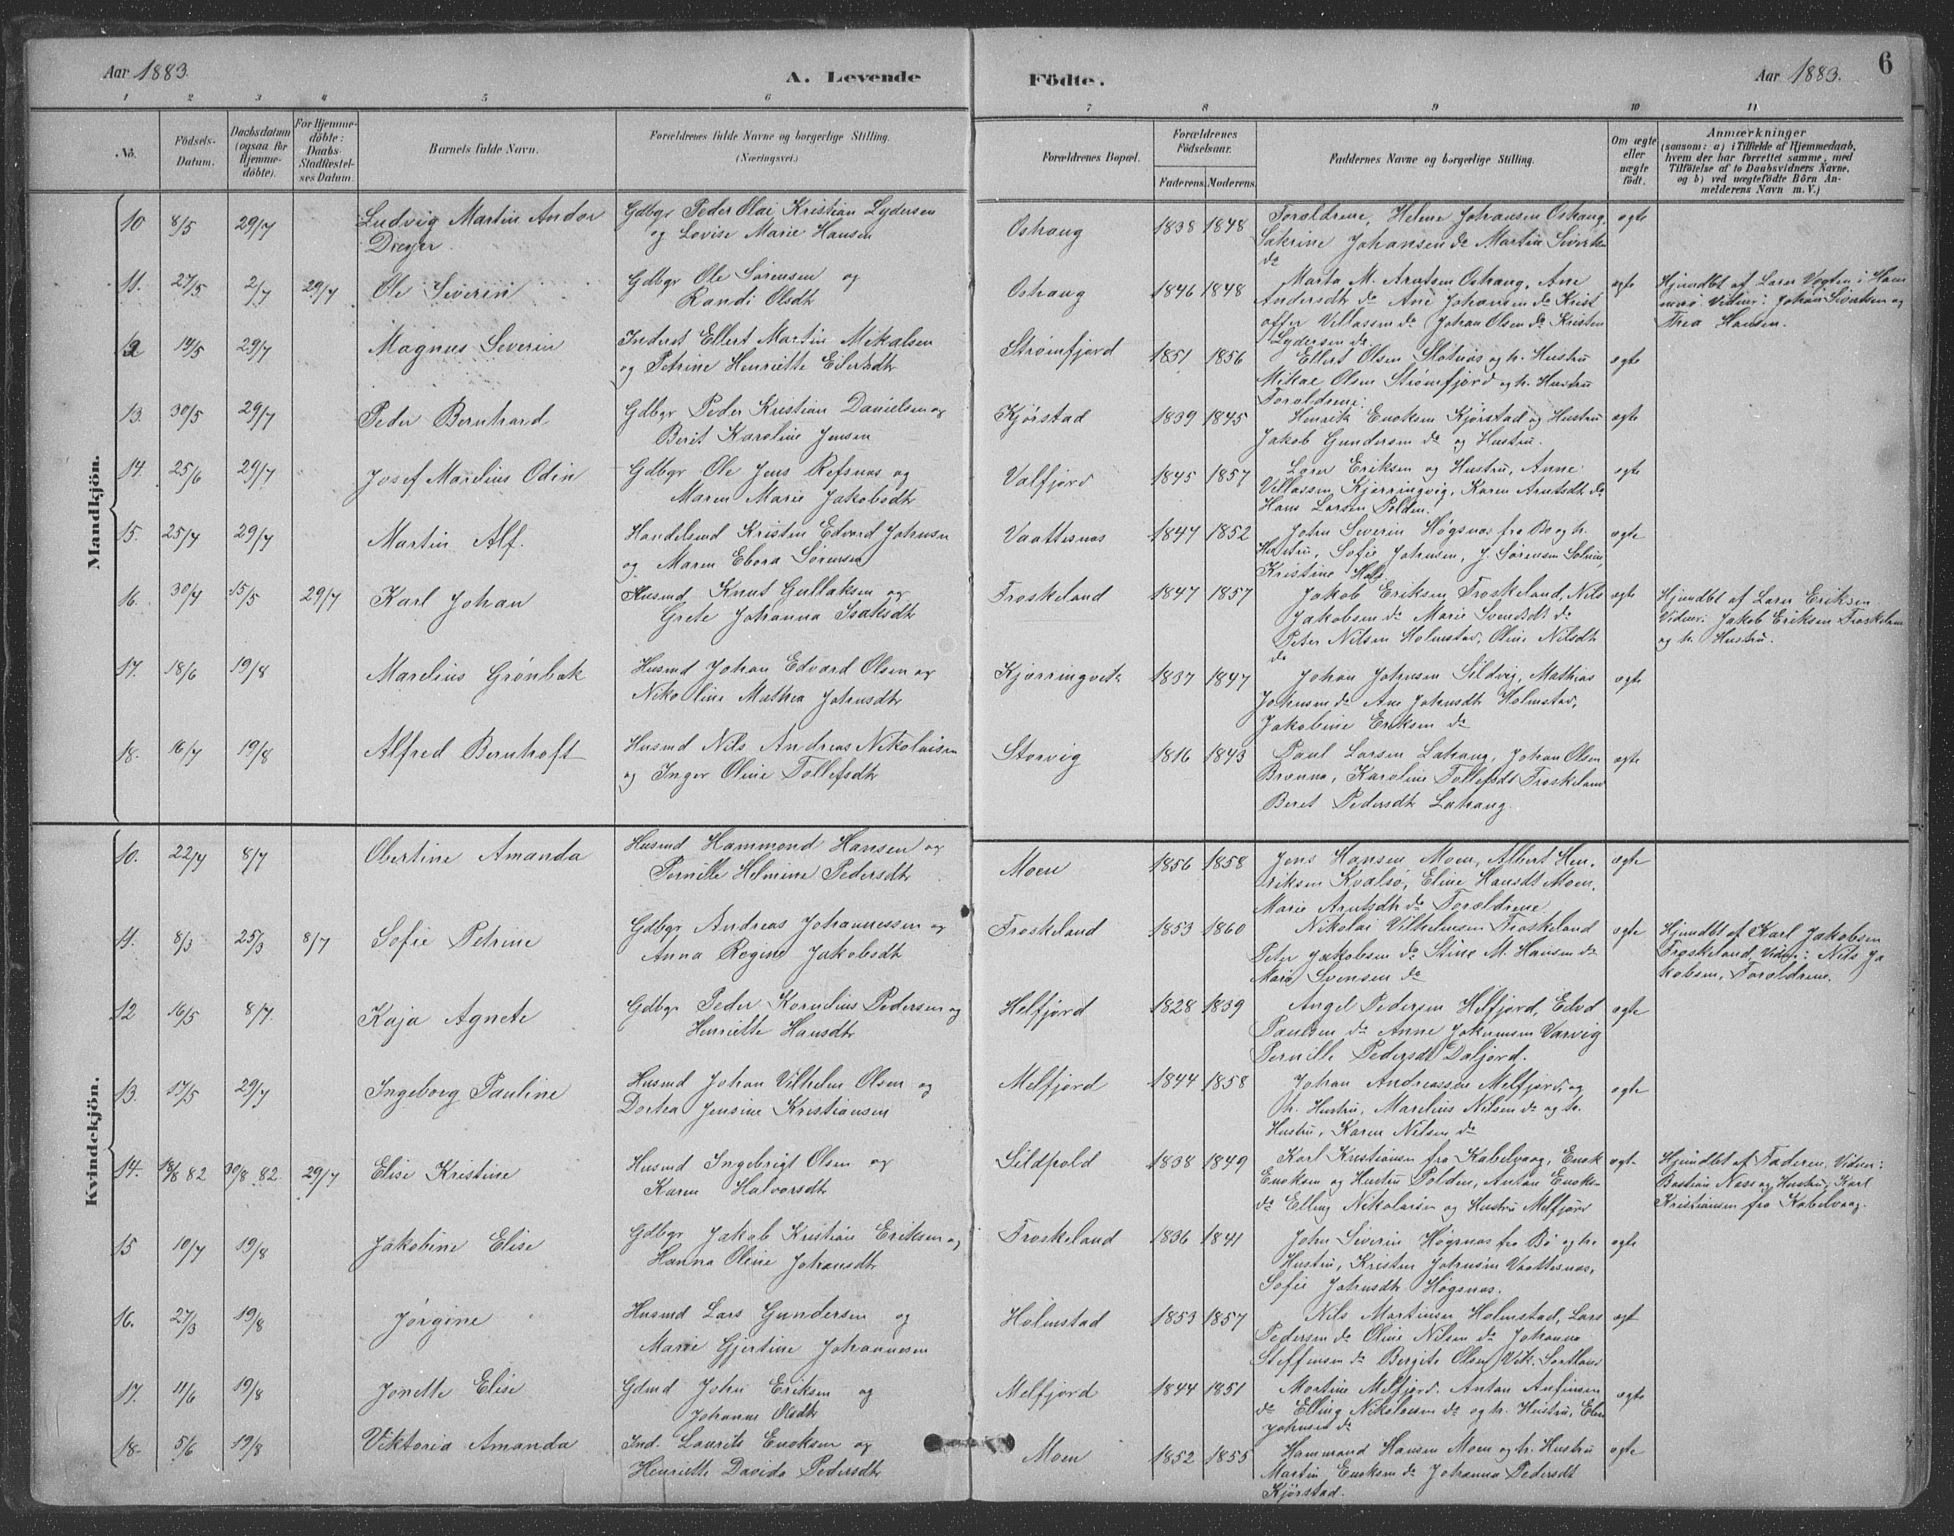 Aar 1883.
A. Levende
Födte.
Aar 1883.
6
1 2 3 4 5 6 7 8 9 10 11.
No.
Födsels-
Datum.
Daabsdatum
(ogsaa for
Hjemme-
döbte).
For Hjemme-
döbte:
Daabs-
Stadfæstel-
ses Datum.
Barnets fulde Navn.
Forældrenes fulde Navne og borgerlige Stilling.
(Næringsvei.)
Forældrenes Bopæl.
Forældrenes
Födselsaar.
Faderens. Moderens.
Faddernes Navne og borgerlige Stilling.
Om ægte
eller
uægte
födt.
Anmærkninger
(saasom: a) i Tilfælde af Hjemmedaab,
hvem der har forrettet samme, med
Tilföielse af to Daabsvidners Navne,
og b) ved uægtefödte Börn An-
melderens Navn m. V.)
Mandkjön.
10 8/5 29/7 Ludvig Martin Andor Gdbgr Peder Olai Kristian Lydersen Oshaug 1838 1848 Foræld­rene, Helene Johansen Oshaug ægte
Dreyer og Lovise Marie Hansen Sakrine Johansen do Martin Siverts
do
11. 27/5 2/7 29/7 Ole Severin Gdbgr Ole Sørensen og Oshaug 1846 1848 Marta M. Arntsen Oshaug, Ane ægte Hjmdbt af Lærer Vogten i Ham
Randi Olsdtr Andersdt do Ane Johansen do Krist Vidner: Johan Sivertsen og
offer Villassen do Johan Olsen do Kristen Thea Hansen.
Lydersen do
12 14/5 29/7 Magnus Severin Inderst Ellert Martin Mikalsen Strømfjord 1851 1856 Ellert Olsen Slotnæs og h. Hustru ægte
og Petrine Henriette Eilertsdtr Mikal Olsen Strømfjord og h. Hustru
Forældrene.
13. 30/5 29/7 Peder Bernhard Gdbgr Peder Kristian Danielsen og Kjørstad 1839 1845 Henrik Enoksen Kjørstad og Hustru ægte
Berit Karoline Jensen Jakob Gundersen do og Hustru.
14. 25/6 29/7 Josef Marelius Odin Gdbgr Ole Jens Refsnæs og Valfjord 1845 1857 Lærer Eriksen og Hustru, Anne ægte
Maren Marie Jakobsdtr Villassen Kjerringvig, Karen Arntsdtr do
Hans Larsen Polden.
15. 25/4 29/7 Martin Alf. Handelsmd Kristen Edvard Johnsen Vaattesnæs 1847 1852 John Severin Høgsnæs fra Bo og h. ægte
og Maren Ebora Sørensen Hustru, Sofie Johnsen, J. Sørensen
Kristine Hals
16. 30/4 15/5 29/7 Karl Johan Husmd Knut Gullaksen og Froskeland 1847 1857 Jakob Eriksen Froskeland, Nils ægte Hjmdbt af Lærer Eriksen
Grete Johanna Isaksdtr Jakobsen do Marie Svendsdt do Vidner: Jakob Eriksen Froskeland
Peter Nilsen Holmstad, Oline Nilsdtr og h. Hustru.
do
17. 18/6 19/8 Marelius Grønbæk Husmd Johan Edvard Olsen og Kjerringvik 1837 1847 Johan Johnsen Sildvig, Mathias ægte
Nikoline Mathea Johnsdtr Johnsen do Ane Johnsdtr Holmstad,
Jakobine Eriksen do
18. 16/7 19/8 Alfred Bernhoft Husmd Nils Andreas Nikolaisen Storvig 1816 1843 Paul Larsen Lahaug, Johan Olsen ægte
og Inger Oline Tollefsdtr Brænna, Karoline Tollefsdt Froskeland
Beret Pedersdtr Lahaug.
Kvindekjön.
10. 22/4 8/7 Obertine Amanda Husmd Hammond Hansen og Moen 1856 1858 Jens Hansen Moen, Albert Hen- ægte
Pernille Helmine Pedersdtr riksen Kvalsø, Eline Hansdt Moen,
Marie Arntsdtr do Forældrene
11. 8/3 25/3 8/7 Sofie Petrine Gdbgr Andreas Johannessen og Froskeland 1853 1860 Nikolai Vilhelmsen Froskeland ægte Hjmdbt af Karl Jakobsen
Anna Regine Jakobsdtr Peter Jakobsen do Stine M. Hansen do Froskeland, Vidner: Nils Ja
Marie Svensen do kobsen, Forældrene.
12 16/5 8/7. Kaja Agnete Gdbgr Peder Kornelius Pedersen og Helfjord 1828 1839 Angel Pedersen Helfjord, Edvd ægte
Henriette Hansdtr Paulsen do Anne Jokumsen Varvig
Pernille Pedersdt Daljord.
13. 17/5 29/7 Ingeborg Pauline Husmd Johan Vilhelm Olsen og Melfjord 1844 1858 Johan Andreassen Melfjord og ægte
Dortea Jensine Kristiansen h. Hustru, Marelius Nilsen do og h.
Hustru, Karen Nilsen do
14. 18/8 82 30/8 82. 29/7 Elise Kristine Husmd Ingebrigt Olsen og Sildpold 1838 1849 Karl Kristiansen fra Kabelvaag, Enok ægt. Hjmdbt af Faderen. Vidner:
Karen Halvorsdtr Enoksen og Hustru Polden, Anton Enoks- Bastian Næss og Hustru, Karl
do Elling Nikolaisen og Hustru Melfjord Kristiansen fra Kabelvaag.
15 10/7 19/8 Jakobine Elise Gdbgr Jakob Kristian Eriksen og Froskeland 1836 1841 John Siverin Høgnæs fra Bø og h. ægte
Hanna Oline Johansdtr Hustru, Kristen Johnsen Vaattesnæs,
Sofie Johnsdtr Høgsnæs.
16. 27/3 19/8 Jørgine Husmd Lars Gundersen og Holmstad 1853 1857 Nils Martinsen Holmstad, Lars ægt
Marie Gjertine Johannesen Pedersen do Oline Nilsen do Johanna
Steffensen do Bergite Olsen Vik. Sortland
17. 11/6 19/8 Jonette Elise Gdmd John Eriksen og Melfjord 1844 1851 Martine Melfjord. Anton Anfinsen ægte
Johanne Olsdtr do Elling Nikolaisen do og h. Hustru, Elen
Johnsen do
18. 5/6 19/8 Viktoria Amanda Ind. Laurits Enoksen og Moen 1852 1855 Hammond Hansen Moen og h. Hustru ægte
Henriette Davida Pedersdtr Martin Enoksen do Johanna Pedersdt
Kjørstad.